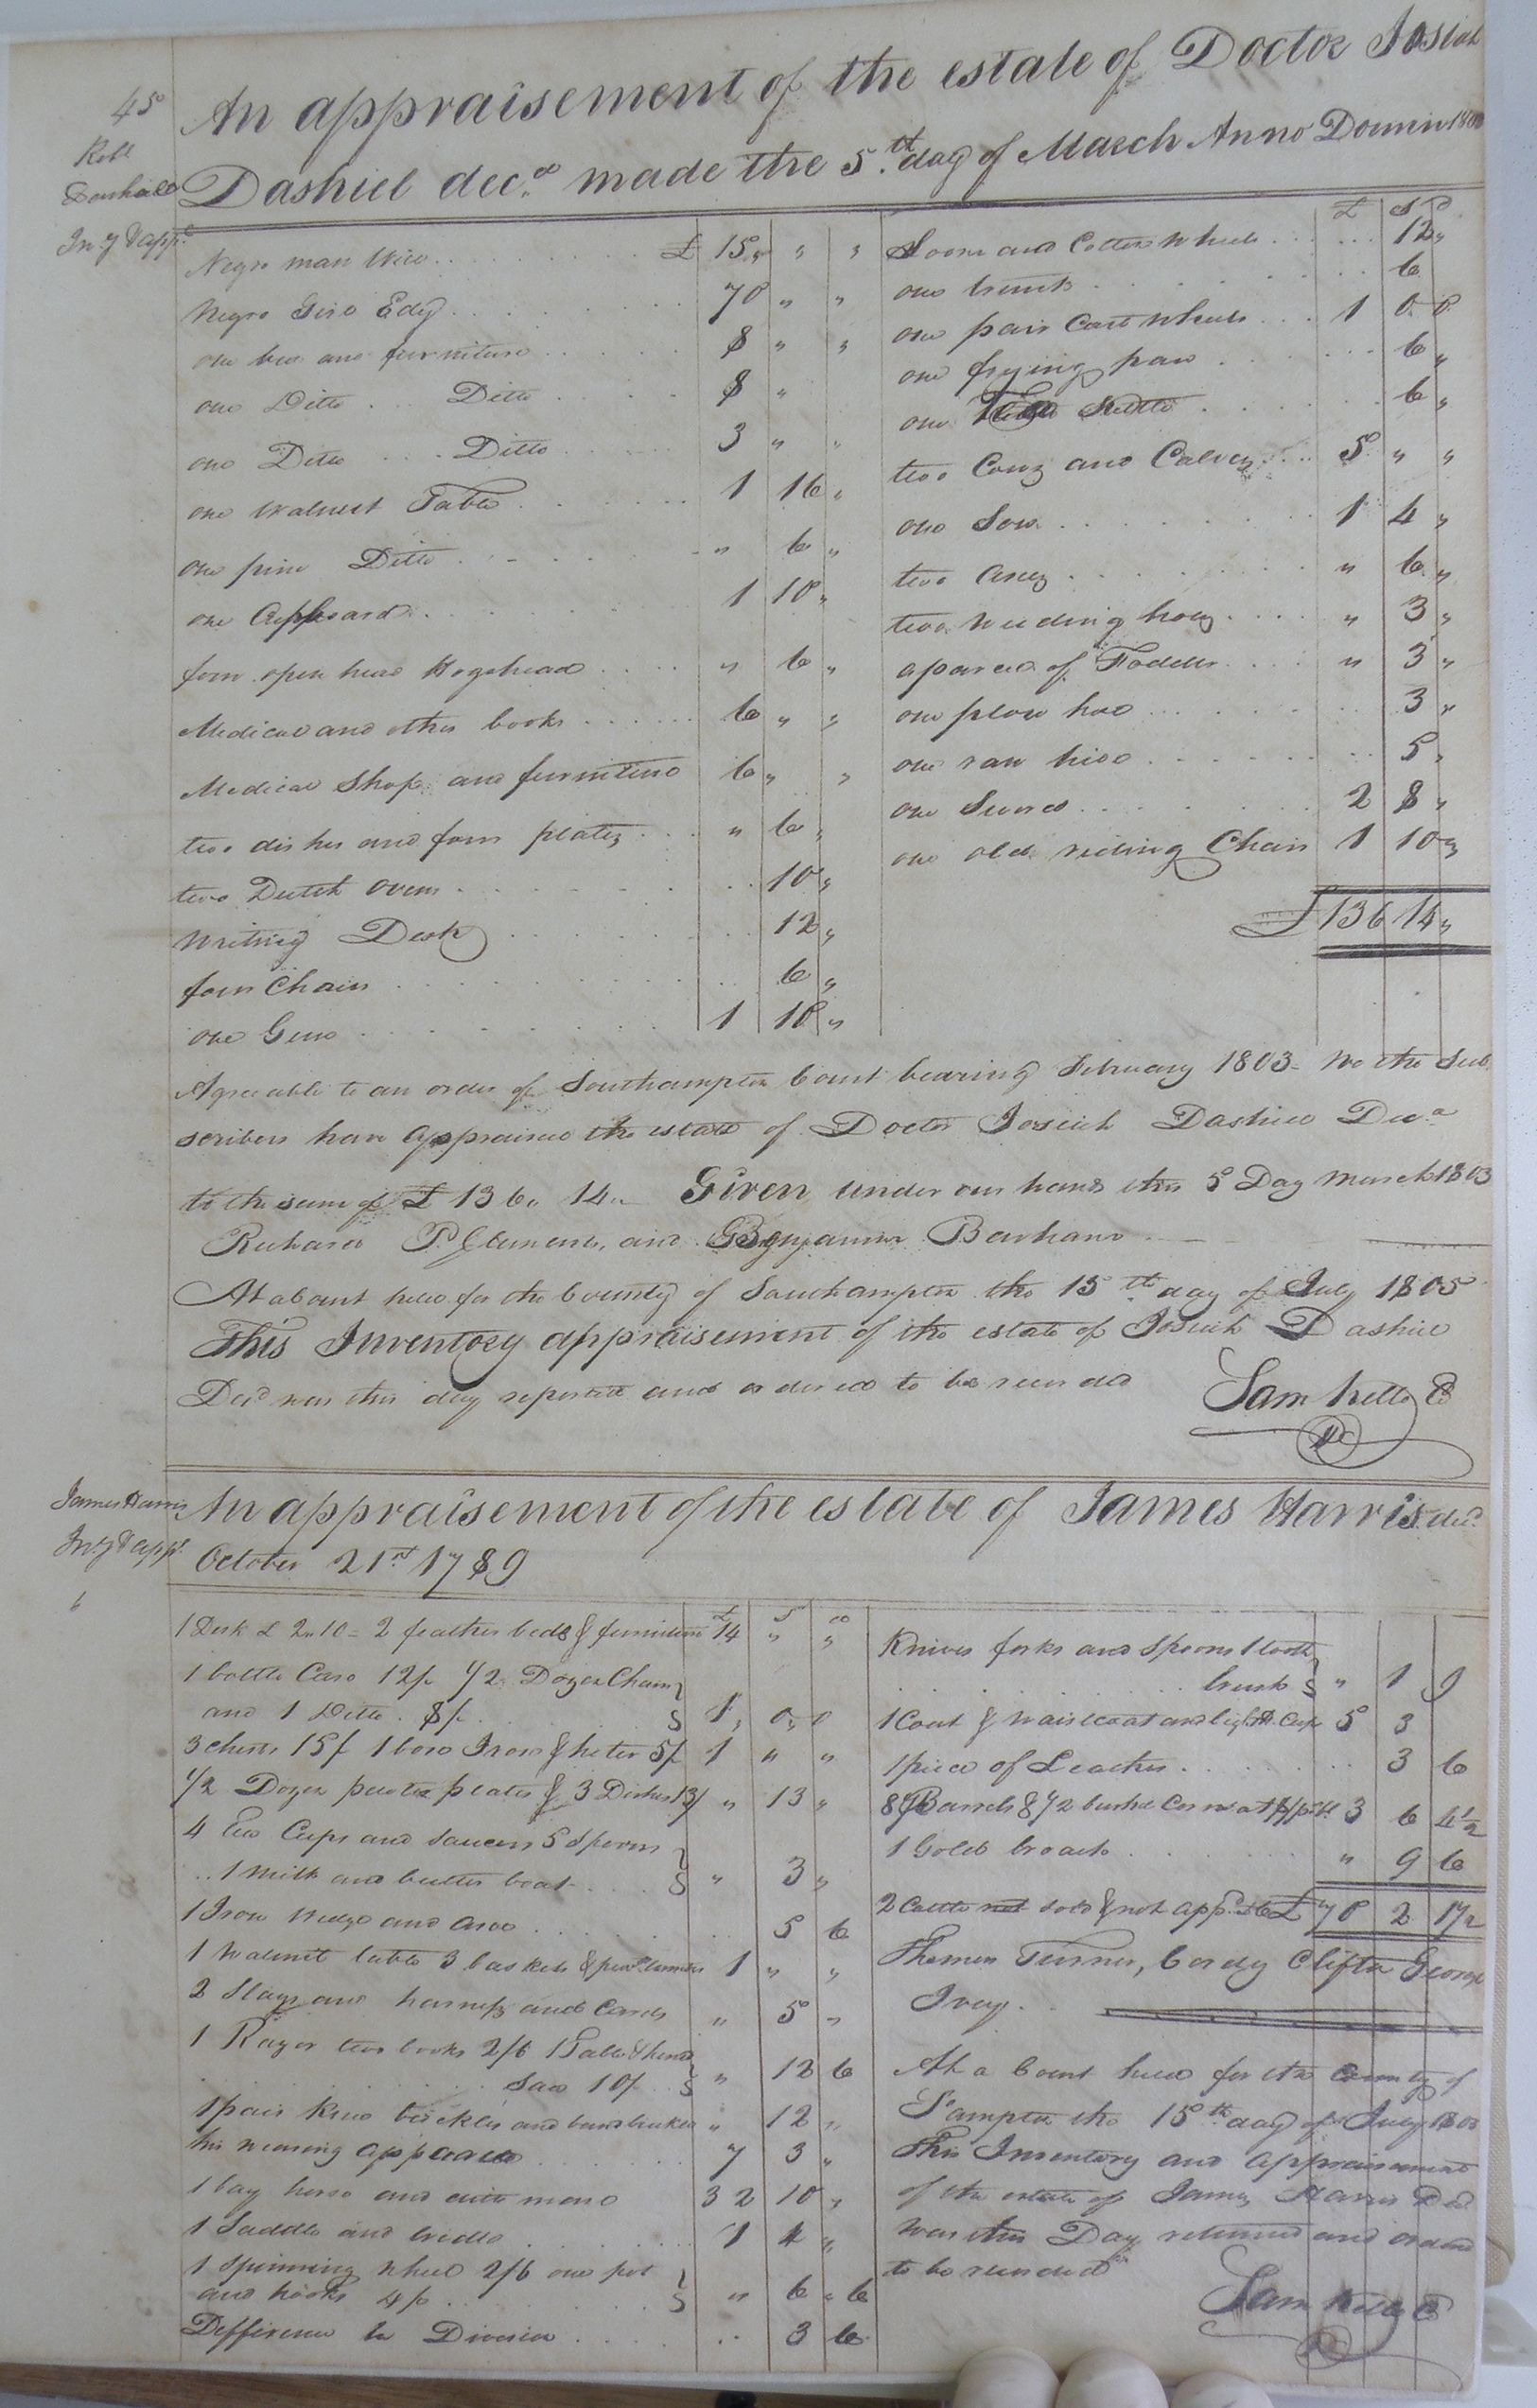 45
An appraisement of the estate of Doctor Josiah
Dashiel dec.d made the 5.th day of March Anno Domini
Inv.y & app.t
£ S D
Negro man Will £ 15 " "
Negro Girl Edy 70 " "
one bed and furniture 8 " "
one Ditto Ditto 8 "
one Ditto Ditto 3 " "
one walnut Table 1 16 "
one pine Ditto " 6 "
one Cupboard 1 10 "
four open head Hogshead " 6 "
Medical and other books 6 " "
Medical Shop and furniture 6 " "
two dishes and four plates " 6 "
two Dutch ovens 10 "
Writing Desk 12 "
four Chairs 6 "
one Gun 1 10 "
Loom and Cotton Wheels 12 "
one trunk 6
one pair Cart Wheels 1 0 0
one frying pan 6 "
one Kettle 6 "
two Cows and Calves 5 " "
one Sow 1 4 "
two axes " 6 "
two weeding hoes " 3 "
a parcel of Fodder " 3 "
one plow hoe 3 "
one raw hide 5 "
one Sword 2 8 "
one old riding Chair 1 10 "
£ 136 14 "
Agreeable to an order of Southampton Court bearing February 1803 We the Sub
scribers have appraised the estate of Doctor Josiah Dashiel Dec.d
to the sum of £ 136 " 14 " Given under our hands this 5 Day March 1803
Richard P. Clements, and Benjamin Barham
At a Court held for the County of Southampton the 15th day of July 1805
This Inventory appraisement of the estate of Josiah Dashiel
Dec.d was this day reported and ordered to be recorded
Sam Kello C
James Harris
Inv.y & app.t
An appraisement of the estate of James Harris dec.d
October 21.st 1789
£ S D
1 Desk £ 2 " 10 = 2 feather beds & furniture 14 " "
1 bottle Case 12/ 1/2 Dozen Chairs
and 1 Ditto 8/ 1 " 0 " 0
3 chests 15/ 1 box Iron & heter 5/ 1 " "
1/2 Dozen pewter plates & 3 Dishes 13/ " 13 "
4 Tea Cups and saucers 5 spoons
1 milk and butter boat " 3 "
1 Iron Wedge and axe 5 6
1 Walnut table 3 baskets & 1 " "
2 Slays and harness and Cards " 5 "
1 Razor two books 2/6 1 Table & hand
Saw 10/ " 12 6
1 pair knee buckles and band buckle " 12 "
his wearing apparel 7 3 "
1 bay horse and ditto mare 32 10 "
1 Saddle and bridle 1 4 "
1 spinning wheel 2/6 one pot
and hooks 4/ " 6 " 6
Difference in Division 3 6
Knives forks and spoons 1 tooth
brush " 1 9
1 Coat & waistcoat and 5 3
1 piece of Leather 3 6
8 Barrels & 1/2 bushel Corn at 3 6 4 1/2
1 Gold broach " 9 6
2 Cattle not sold & not app.d £ 70 2 1 1/2
Turner, Cordy Clifton George
Ivey.
At a Court held for the County of
S'ampton the 15th day of July
This Inventory and appraisement
of the estate of James Harris Dec.d
was this Day returned and ordered
to be recorded
Sam Kello C